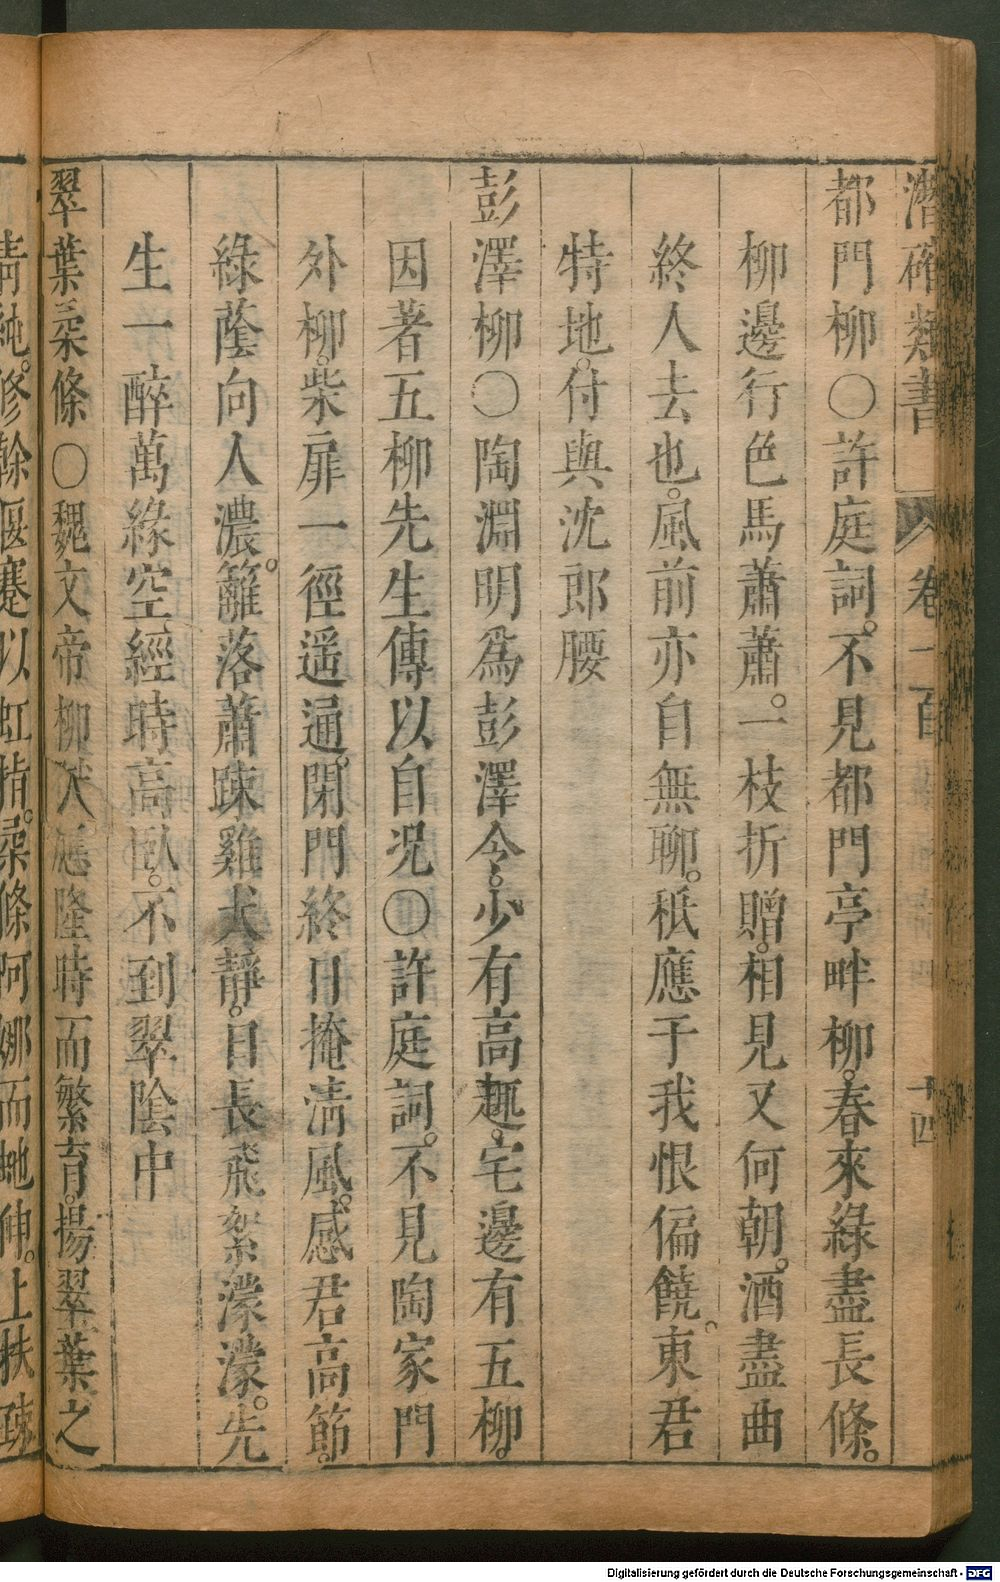 潛確類書 卷一百 十四
都門柳○許庭詞。不見都門亭畔柳。春來綠盡長條。
柳邊行色馬蕭蕭。一枝折贈。相見又何朝。酒盡曲
終人去也。風前亦自無聊。秪應于我恨偏饒。東君
特地。付與沈郎腰
彭澤柳○陶淵明為彭澤令。少有高趣。宅邊有五柳。
因著五柳先生傳以自况○許庭詞。不見陶家門
外柳。柴扉一徑遥通。閉門終日掩淸風。感君高節。
綠蔭向人濃。籬落蕭踈雞犬靜。日長飛絮濛濛。先
生一醉萬緣空。經時高臥。不到翠陰中
翠葉柔條○魏文帝柳賦。應隆時而繁育。揚翠葉之
靑純。修榦偃蹇以虹指。柔條阿娜而虵伸。上扶踈
Digitalisierung gefördert durch die Deutsche Forschungsgemeinschaft - DFG